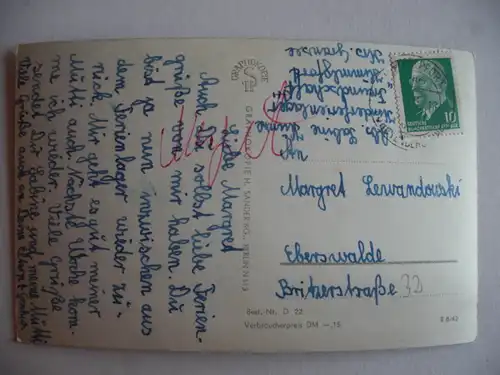 Liebe Margret
Auch Du sollst liebe Ferien-
grüße von mir haben. Du
bist ja nun inzwischen aus
dem Ferienlager wieder zu-
rück. Mir geht es gut meiner
Mutti auch. Nächste Woche kom-
me ich wieder. Viele Grüße
sendet Dir Sabine und meine Mutti
Viele Grüße auch an Deine Eltern +
GRAPHOKOPIE
GRAPHOKOPIE H. SANDER KG., BERLIN
Abs. Sabine
Kinderferienlager
"Freundschaft"
Himmelpfort
Krs. Gransee
10
An
Margret Lewandowski
Eberswalde
Britzerstraße 32
Best.-Nr. D 22
Verbraucherpreis DM -,15